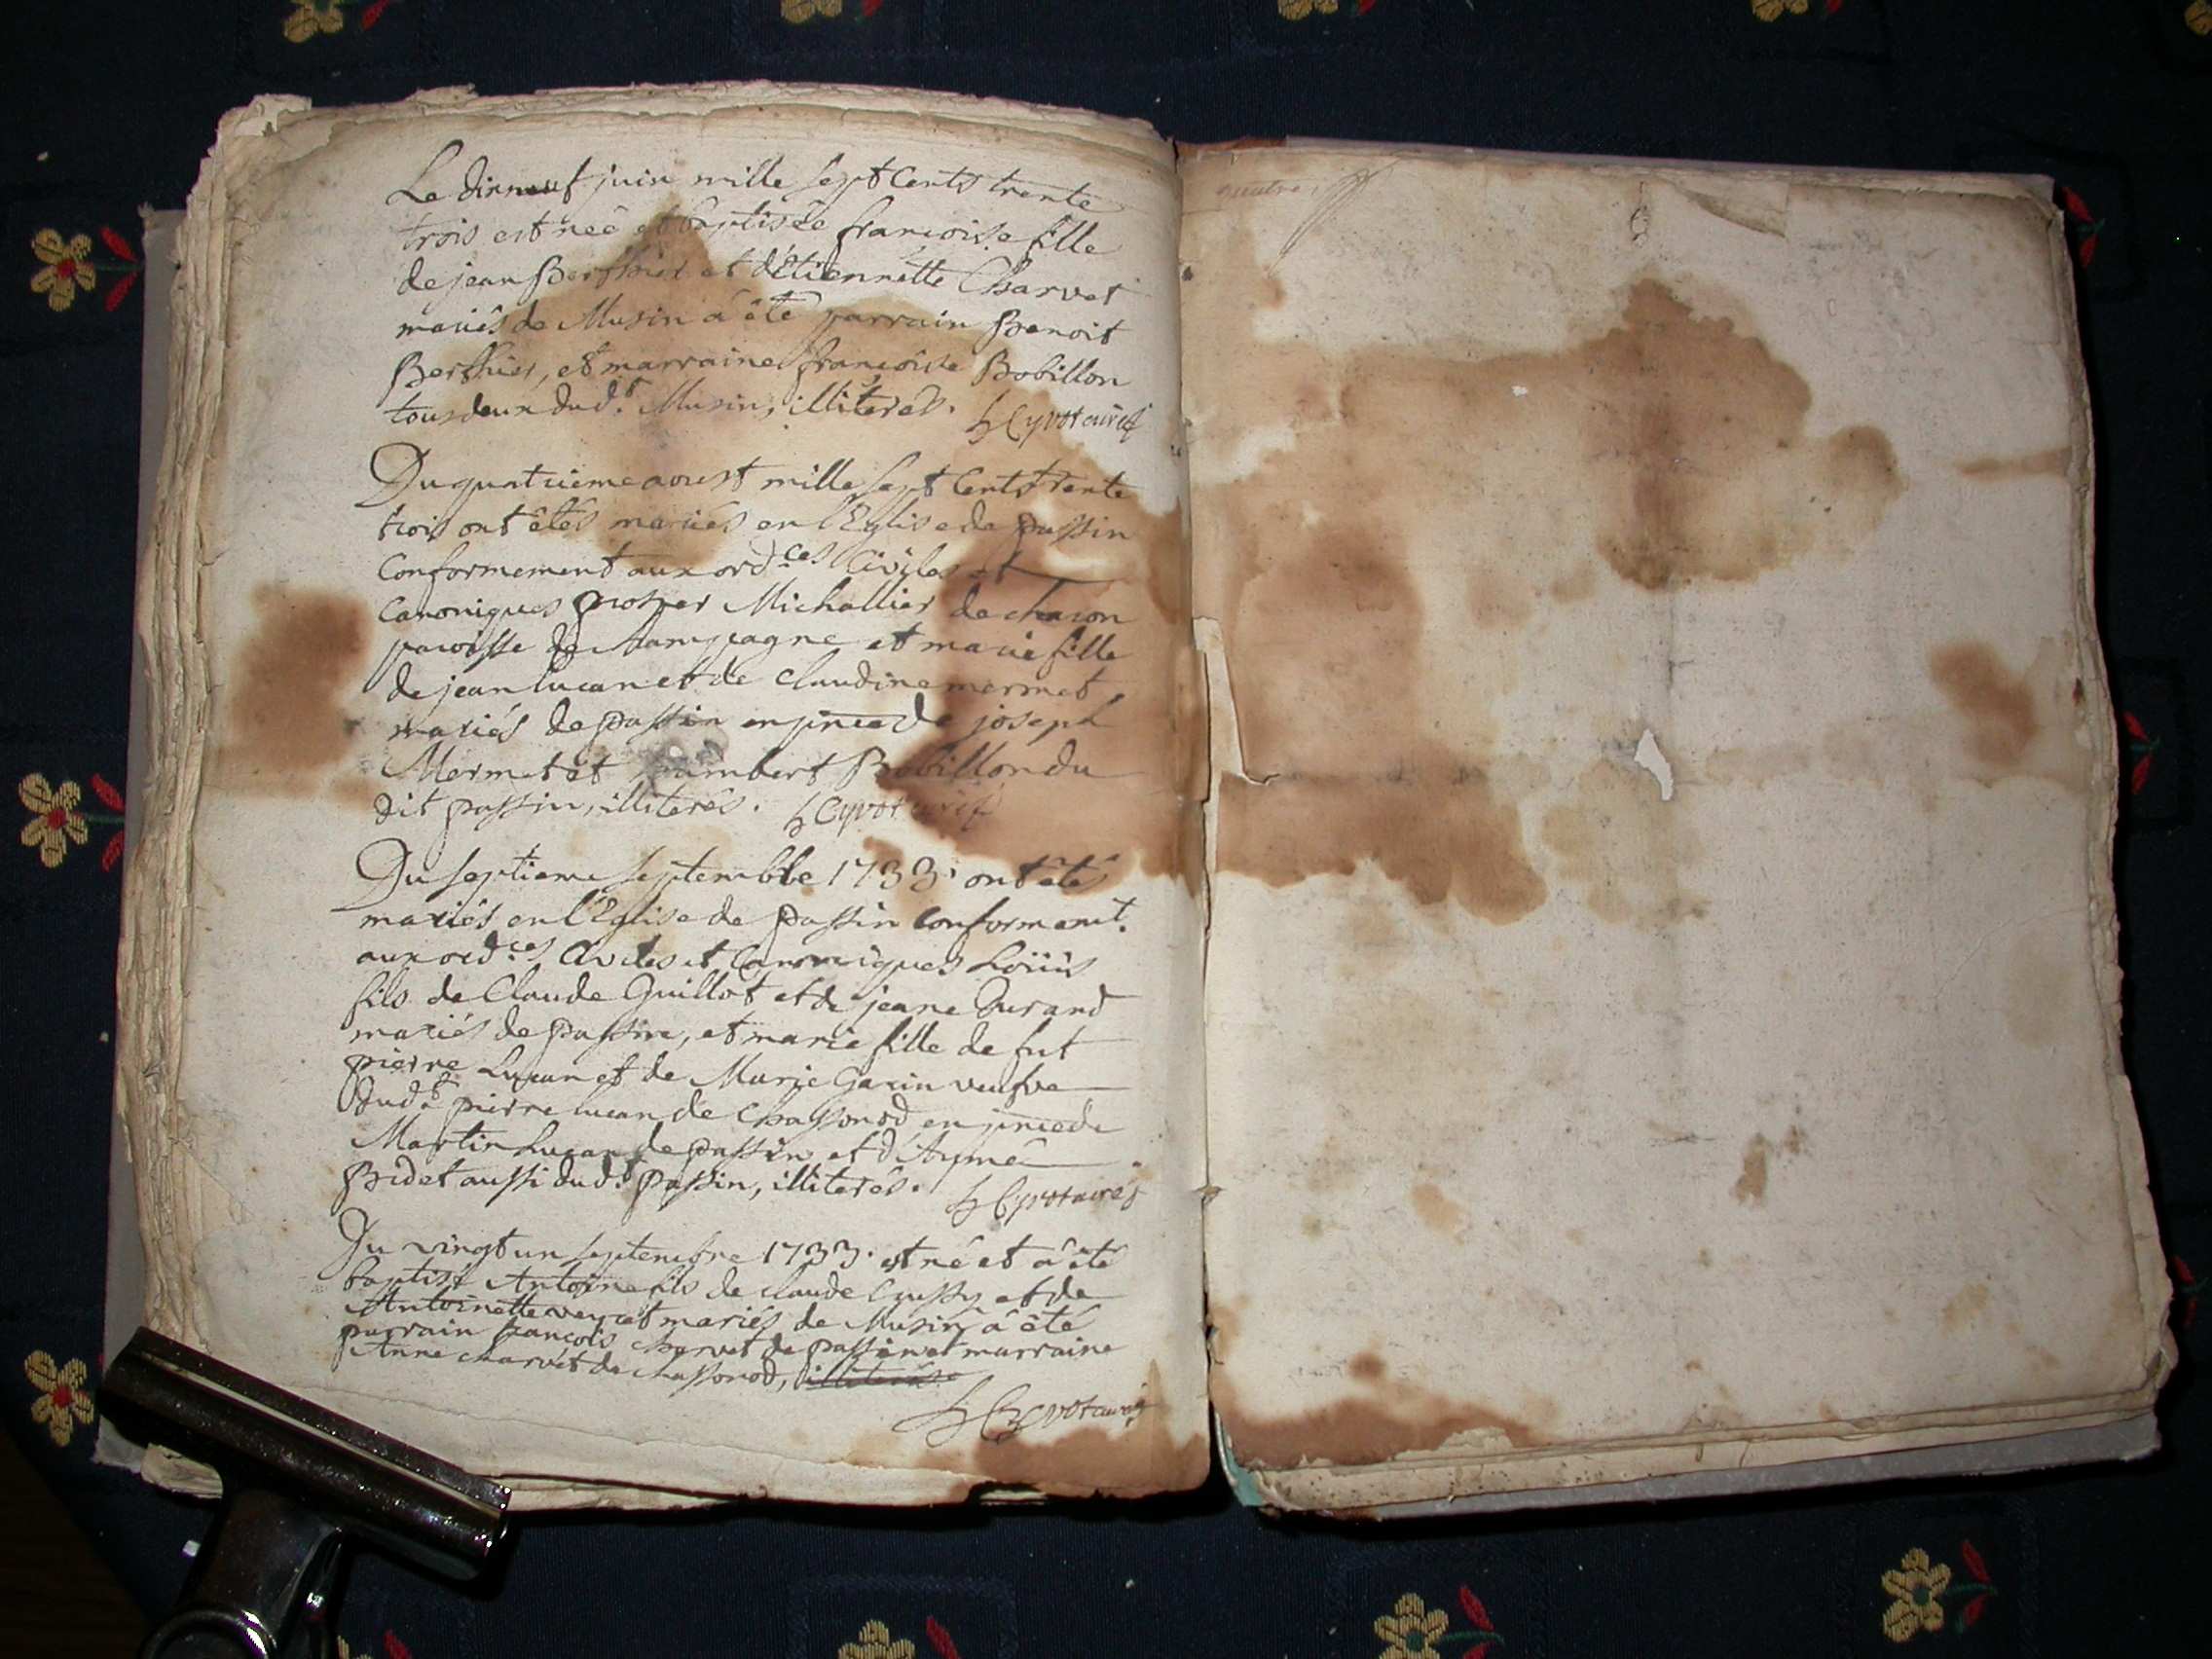 Le dixneuf juin mille sept Cents trente
trois est née et baptisée françoise fille
de jean Berthier et d'Etiennette Charvet
mariés de Musin a été parrain Benoit
Berthier, et marraine françoise Bobillon
tous deux dud.t Musin, illiterés. Cyvot curé
Du quatrieme aoust mille sept Cents trente
trois ont étés mariés en l'Eglise de passin
Conformement aux ord.ces Civiles et
Canoniques prosper Michallier de charon
paroisse de Champagne et marie fille
de jean lucan et de Claudine mermet
mariés de passin en pñce de joseph
Mermet et humbert Bobillon du
dit passin, illiterés. Cyvot curé
Du septieme septembre 1733. ont étés
mariés en l'Eglise de passin Conformemt.
aux ord.ces Civiles et Canoniques Loüis
fils de Claude Guillot et de jeane Durand
mariés de passin, et marie fille de fut
pierre Lucan et de Marie Garin veufve
dud.t pierre lucan de Chassonod en pñce de
Martin Lucan de passin et d'Aymé
Bidet aussi dud.t passin, illiterés. Cyvot curé
Du vingt un septembre 1733. est né et a été
baptisé Antoine fils de claude Cussy et de
Antoinette veyret mariés de Musin a été
parrain françois Charvet de passin et marraine
Anne charvet de chassonod, illiterés.
Cyvot curé